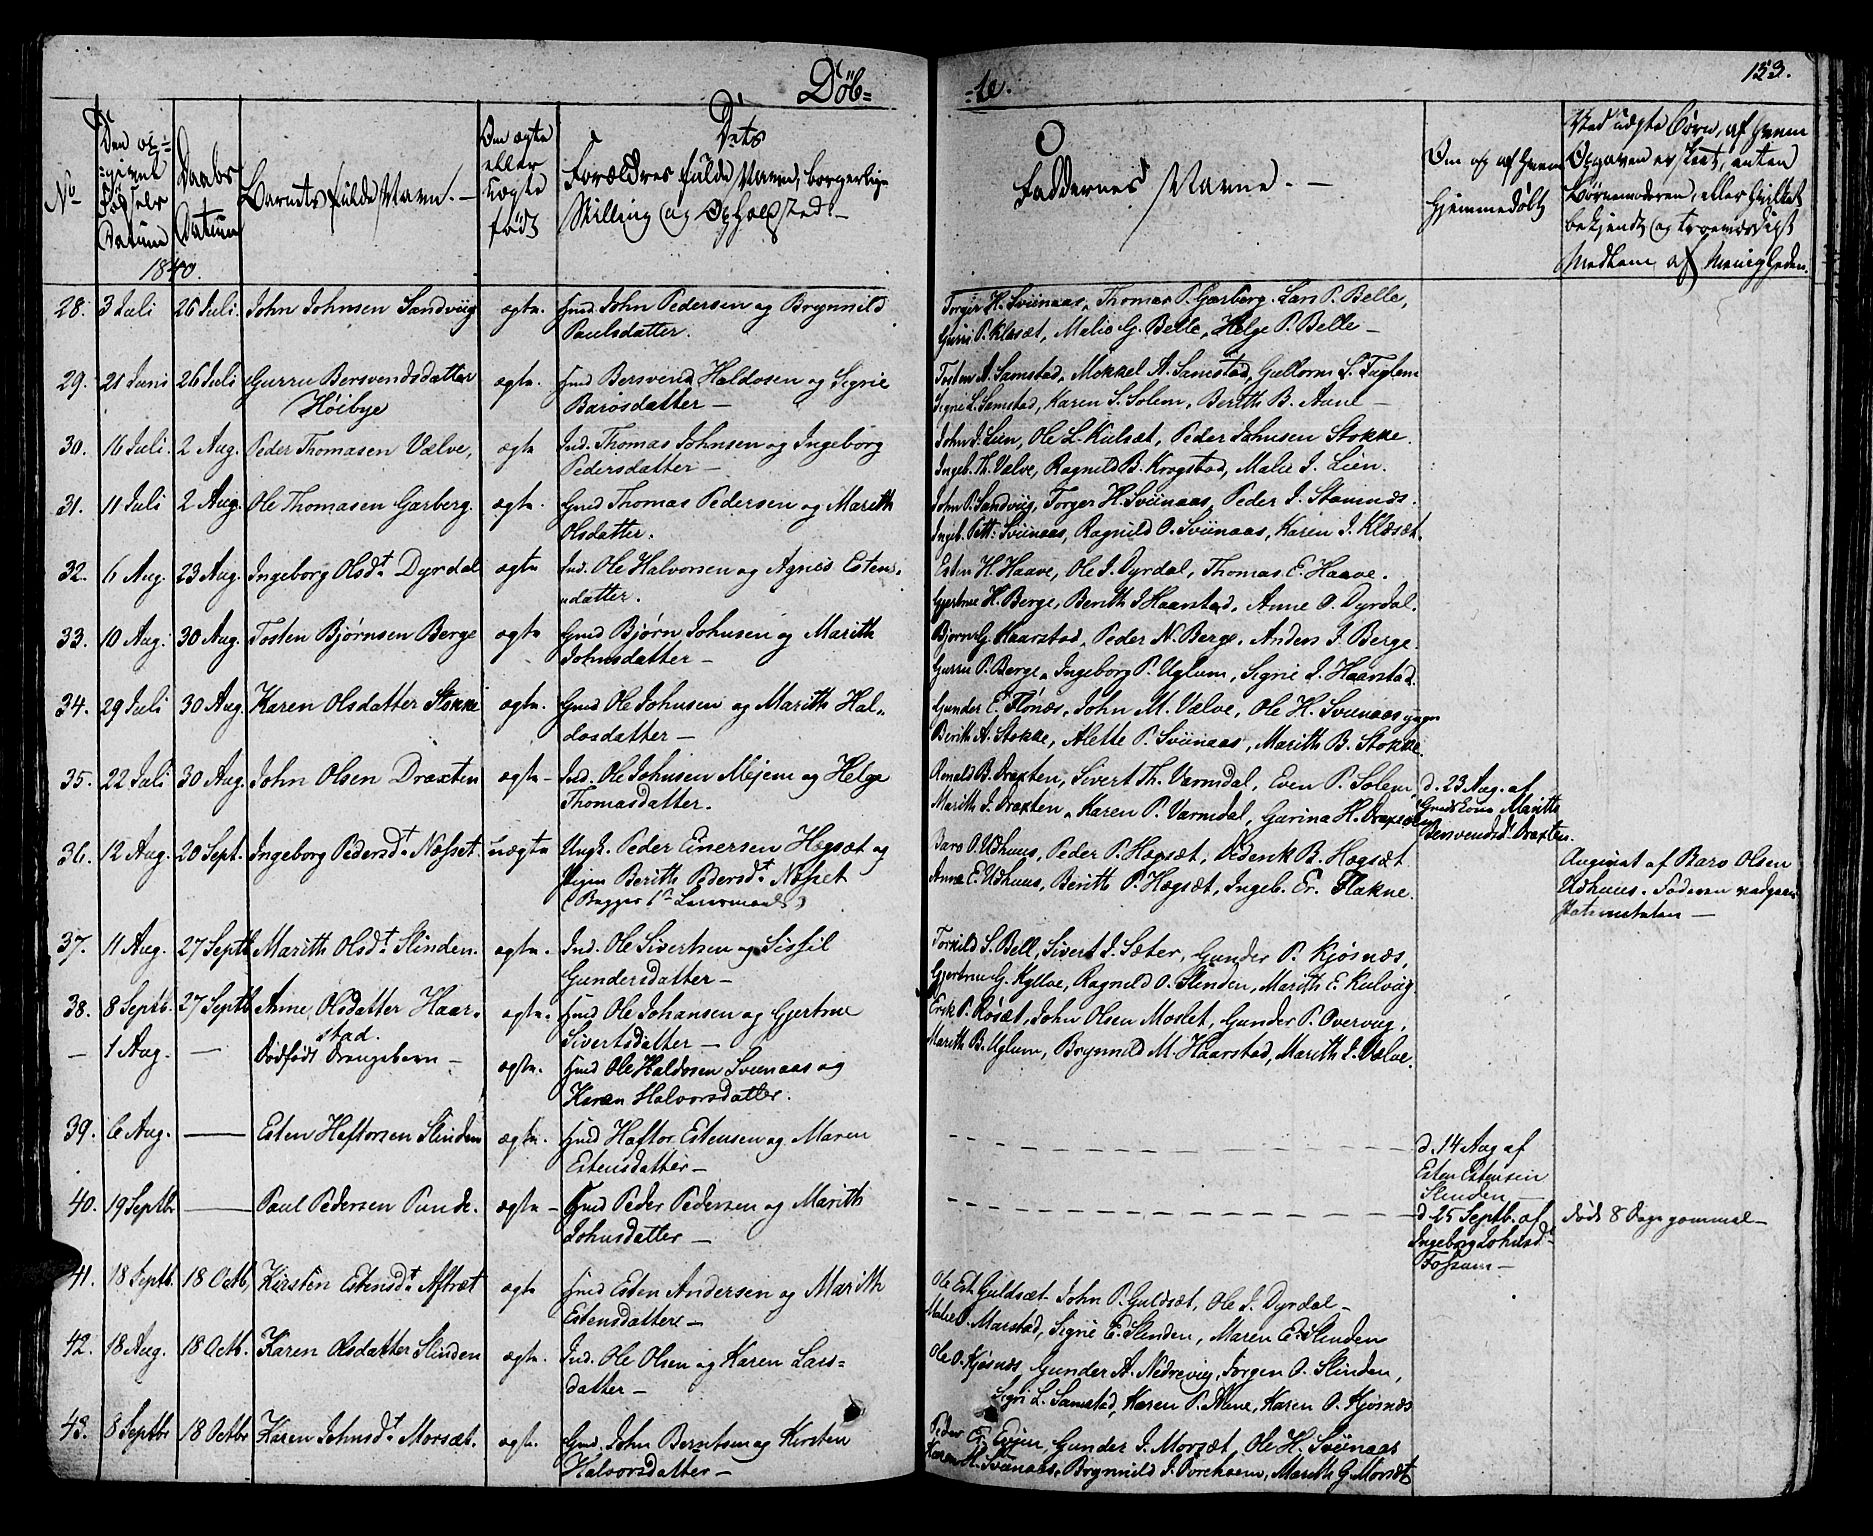 Døb=
=te.
153.
No
Den op=
givne
Fødsels
Datum
Daabs
Datum
Barnets fulde Navn. —
Om ægte
eller
uægte
født
Dets
Forældres fulde Navne, borgerlige
Stilling og Opholdsted. —
Faddernes Navne. —
Om og af hvem
hjemmedøbt
Ved uægte Børn, af hvem
Opgaven er skeet, enten
Børnemoderen, eller hvilket
bekjendt og troværdigt
Medlem af Menigheden.
1840.
28. 3 Juli 26 Juli. John Johnsen Sandviig ægte. Gmd. John Pedersen og Brynnild
Paulsdatter.
Torger H. Sviinaas, Thomas P. Garberg. Lars P. Belle,
Gurri P. Klæsæt, Malie G. Belle, Helge P. Belle —
29. 21 Juni 26 Juli Gurru Bersvendsdatter ægte. Gmd Bersvend Haldosen og Sigrie
Høibye Barosdatter —
Tosten A. Samstad, Mokkel A. Samstad, Guttorm S. Fuglem
Sigri L. Samstad, Karen S. Solem, Berith B. Aune —
30. 16 Juli. 2 Aug. Peder Thomasen Vælve, ægte Ind. Thomas Johnsen og Ingeborg
Pedersdatter —
John J. Lien, Ole L. Kulsæt, Peder Johnsen Stokke.
Ingeb. Th. Vælve, Ragnild B. Krogstad, Malie J. Lien.
31. 11 Juli 2 Aug. Ole Thomasen Garberg. ægte. Gmd Thomas Pedersen og Marith
Olsdatter.
John P. Sandviig, Torger H. Sviinaas, Peder J. Stamnes.
Ingeb. Pett: Sviinaas, Ragnild O. Sviinaas, Karen J. Klæsæt.
32. 6 Aug. 23 Aug. Ingeborg Olsdt. Dyrdal ægte Ind. Ole Halvorsen og Agnes Esten=
=datter.
Esten H. Haave, Ole J. Dyrdal, Thomas E. Haave.
Gjertrue H. Berge, Berith J Haarstad, Anne O. Dyrdal.
33. 10 Aug. 30 Aug. Tosten Bjørnsen Berge ægte Gmd Bjørn Johnsen og Marith
Johnsdatter —
Bjørn G. Haarstad, Peder N. Berge, Anders J. Berge.
Gurru P. Berge, Ingeborg P. Uglum, Sigrie J. Haarstad.
34. 29 Juli 30 Aug. Karen Olsdatter Stokke ægte. Gmd Ole Johnsen og Marith Hal=
dosdatter —
Gunder E. Flønæs, John M. Vælve, Ole H. Sviinaas yngre
Berith A. Stokke, Alette P. Sviinaas, Marith B. Stokke
35. 22 Juli 30 Aug. John Olsen Draxten ægte — Ind. Ole Johnsen Mejem og Helge
Thomasdatter.
Arnold B. Draxten, Sivert Th. Varmdal, Even P. Solem,
Marith J. Draxten, Karen P. Varmdal, Gurina H. Draxten
d. 23 Aug. af
Gmds Kone Marith
Bersvendsdt. Draxten.
36. 12 Aug. 20 Sept. Ingeborg Pedersdt. Næsset. uægte Ungk. Peder Einersen Hægsæt og
Pigen Berith Pedersdt. Næsset
(Begges 1ste Leiermaal)
Baro O. Udhuus, Peder P. Hægsæt, Diderik B. Hægsæt
Anne E. Udhuus, Berith P. Hægsæt, Ingeb. Er. Flakne.
Angivet af Baro Olsen
Udhuus. Faderen vedgaaer
Paterniteten —
37. 11 Aug. 27 Septb. Marith Olsdt. Slinden. ægte. Ind. Ole Sivertsen og Sissil
Gundersdatter —
Torkild S. Bell, Sivert J. Sæter, Gunder P. Kjøsnæs,
Gjertrue G. Kyllve, Ragnild O. Slinden, Marith E. Kulviig.
38. 8 Septb. 27 Septb. Anne Olsdatter Haar=
stad. ægte. Gmd Ole Johansen og Gjertrue
Sivertsdatter —
Erik P. Røsæt, John Olsen Moslet, Gunder P. Overviig,
Marith B. Uglum, Brynnild M. Haarstad, Marith J. Vælve.
— 1 Aug. — Dødfødt Drengebarn — ægte. Gmd Ole Haldosen Sviinaas og
Karen Halvorsdatter.
39. 6 Aug. — Esten Haftorsen Slinden ægte. Gmd Haftor Estensen og Maren
Estensdatter —
d. 14 Aug af
Esten Estensen
Slinden —
40. 19 Septbr — Paul Pedersen Punde. ægte — Gmd Peder Pedersen og Marith
Johnsdatter —
d 25 Septb. af
Ingeborg Johnsdt.
Fossum —
Død 8 Dage gammel —
41. 18 Septb. 18 Octb. Kirsten Estensdt. Aftræt ægte Gmd Esten Andersen og Marith
Estensdatter —
Ole Est. Guldsæt. John P. Guldsæt, Ole J. Dyrdal —
Malie O. Marstad, Sigrie E. Slinden, Maren E. Slinden
42. 18 Aug. 18 Octb. Karen Olsdatter Slinden ægte. Ind. Ole Olsen og Karen Lars=
datter —
Ole O. Kjøsnæs, Gunder A. Nedreviig, Jørgen O. Slinden,
Sigri L. Samstad, Karen P. Aune, Karen O. Kjøsnæs
43. 8 Septbr 18 Octbr Karen Johnsdt. Morsæt. ægte. Gmd. John Berntsen og Kirsten
Halvorsdatter —
Peder Er. Evjen, Gunder J. Morsæt, Ole H. Sviinaas
Karen H. Sviinaas, Brynnild J. Borehaem, Marith G. Morsæt